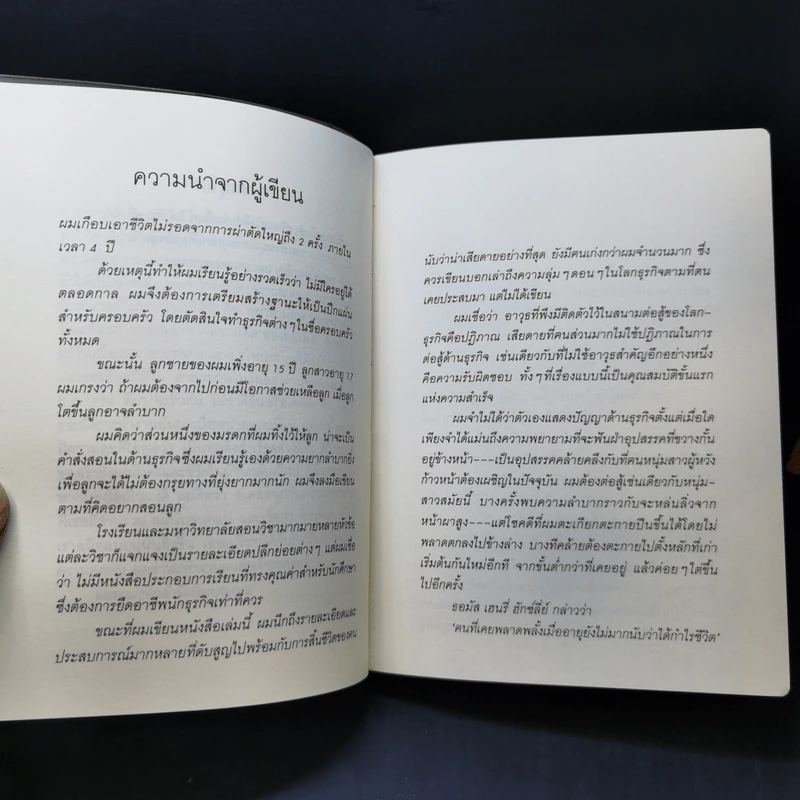 ความนำจากผู้เขียน
ผมเกือบเอาชีวิตไม่รอดจากการผ่าตัดใหญ่ถึง 2 ครั้ง ภายใน
เวลา 4 ปี
ด้วยเหตุนี้ทำให้ผมเรียนรู้อย่างรวดเร็วว่า ไม่มีใครอยู่ได้
ตลอดกาล ผมจึงต้องการเตรียมสร้างฐานะให้เป็นปึกแผ่น
สำหรับครอบครัว โดยตัดสินใจทำธุรกิจต่างๆในชื่อครอบครัว
ทั้งหมด
ขณะนั้น ลูกชายของผมเพิ่งอายุ 15 ปี ลูกสาวอายุ 17
ผมเกรงว่า ถ้าผมต้องจากไปก่อนมีโอกาสช่วยเหลือลูก เมื่อลูก
โตขึ้นลูกอาจลำบาก
ผมคิดว่าส่วนหนึ่งของมรดกที่ผมทิ้งไว้ให้ลูก น่าจะเป็น
คำสั่งสอนในด้านธุรกิจซึ่งผมเรียนรู้เองด้วยความยากลำบากยิ่ง
เพื่อลูกจะได้ไม่ต้องกรุยทางที่ยุ่งยากมากนัก ผมจึงลงมือเขียน
ตามที่คิดอยากสอนลูก
โรงเรียนและมหาวิทยาลัยสอนวิชามากมายหลายหัวข้อ
แต่ละวิชาก็แจกแจงเป็นรายละเอียดปลีกย่อยต่างๆ แต่ผมเชื่อ
ว่า ไม่มีหนังสือประกอบการเรียนที่ทรงคุณค่าสำหรับนักศึกษา
ซึ่งต้องการยึดอาชีพนักธุรกิจเท่าที่ควร
ขณะที่ผมเขียนหนังสือเล่มนี้ ผมนึกถึงรายละเอียดและ
ประสบการณ์มากหลายที่ดับสูญไปพร้อมกับการสิ้นชีวิตของคน
นับว่าน่าเสียดายอย่างที่สุด ยังมีคนเก่งกว่าผมจำนวนมาก ซึ่ง
ควรเขียนบอกเล่าถึงความลุ่มๆดอนๆในโลกธุรกิจตามที่ตน
เคยประสบมา แต่ไม่ได้เขียน
ผมเชื่อว่า อาวุธที่พึงมีติดตัวไว้ในสนามต่อสู้ของโลก-
ธุรกิจคือปฏิภาณ เสียดายที่คนส่วนมากไม่ใช้ปฏิภาณในการ
ต่อสู้ด้านธุรกิจ เช่นเดียวกับที่ไม่ใช้อาวุธสำคัญอีกอย่างหนึ่ง
คือความรับผิดชอบ ทั้งๆที่เรื่องแบบนี้เป็นคุณสมบัติขั้นแรก
แห่งความสำเร็จ
ผมจำไม่ได้ว่าตัวเองแสดงปัญญาด้านธุรกิจตั้งแต่เมื่อใด
เพียงจำได้แม่นถึงความพยายามที่จะฟันฝ่าอุปสรรคที่ขวางกั้น
อยู่ข้างหน้า---เป็นอุปสรรคคล้ายคลึงกับที่คนหนุ่มสาวผู้หวัง
ก้าวหน้าต้องเผชิญในปัจจุบัน ผมต้องต่อสู้เช่นเดียวกับหนุ่ม-
สาวสมัยนี้ บางครั้งพบความลำบากราวกับจะหล่นลิ่วจาก
หน้าผาสูง---แต่โชคดีที่ผมตะเกียกตะกายปีนขึ้นได้โดยไม่
พลาดตกลงไปข้างล่าง บางทีคล้ายต้องตะกายไปตั้งหลักที่เก่า
เริ่มต้นกันใหม่อีกที จากขั้นต่ำกว่าที่เคยอยู่ แล้วค่อยๆไต่ขึ้น
ไปอีกครั้ง
ธอมัส เฮนรี่ ฮักซ์ลี่ย์ กล่าวว่า
'คนที่เคยพลาดพลั้งเมื่ออายุยังไม่มากนับว่าได้กำไรชีวิต'